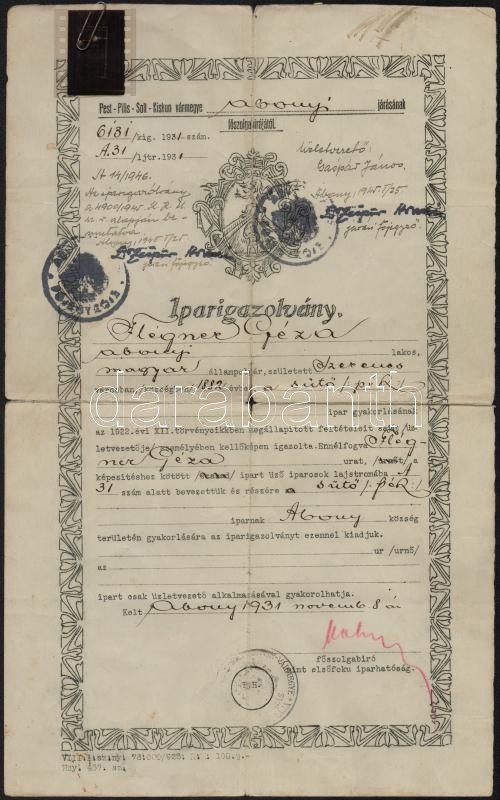 Pest - Pilis - Solt - Kiskun vármegye abonyi járásának
főszolgabirájától.
6181 /kig. 1931 szám.
A. 31 /ljtr. 1931
Üzletvezető:
Gáspár János.
Abony, 1945 V/25
14/1946.
Az iparigazolvány
alapján be-
járási főjegyző
járási főjegyző
Iparigazolvány.
Flégner Géza
abonyi lakos,
magyar állampolgár, született Szerencs
városban/községben 1882 évben a sütő /pék/
ipar gyakorlásának
az 1922.évi XII.törvénycikkben megállapított feltételeit saját/üz
letvezetője/ személyében kellőképen igazolta.Ennélfogva Flég-
ner Géza urat, a
képesítéshez kötött ipart üző iparosok lajstromába A
31 szám alatt bevezettük és részére a sütő /pék/
iparnak Abony község
területén gyakorlására az iparigazolványt ezennel kiadjuk.
ur /urnő/
az
ipart csak üzletvezető alkalmazásával gyakorolhatja.
Kelt Abony 1931 novemb. 8 án
főszolgabiró
mint elsőfoku iparhatóság.
darabanth